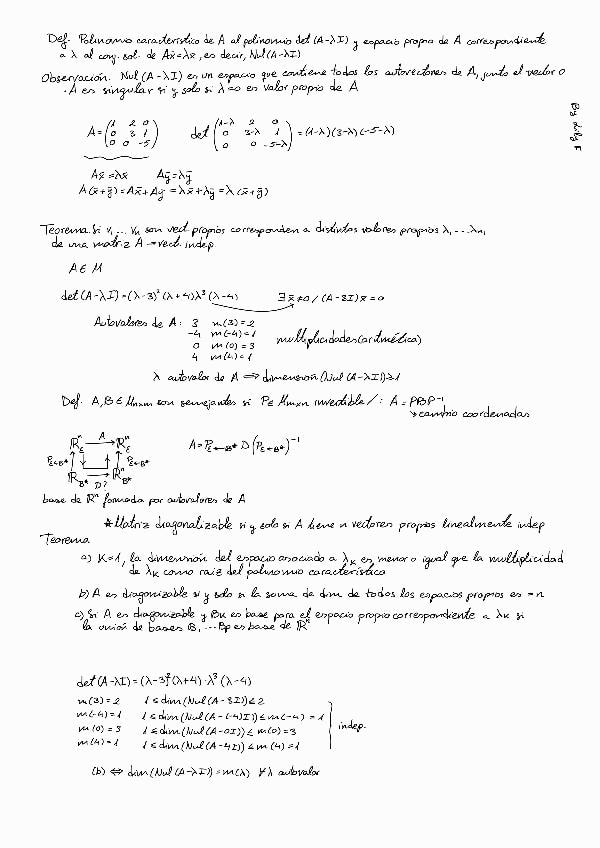 Def. Polinomio característico de A al polinomio det(A-λI) y espacio propio de A correspondiente
a λ al conj. sol. de Ax̄=λx̄, es decir, Nul(A-λI)
Observación. Nul(A-λI) es un espacio que contiene todos los autovectores de A, junto el vector 0
· A es singular si y solo si λ=0 es valor propio de A
By Lily F
A = (1 2 0
0 3 1
0 0 -5) det (1-λ 2 0
0 3-λ 1
0 0 -5-λ) = (1-λ)(3-λ)(-5-λ)
Ax̄ = λx̄ Aȳ = λȳ
A(x̄+ȳ) = Ax̄+Aȳ = λx̄+λȳ = λ(x̄+ȳ)
Teorema. Si v₁ ... vₙ son vect. propios corresponden a distintos valores propios λ₁ ... λₙ,
de una matriz A → vect. indep
A ∈ M
det(A-λI) = (λ-3)²(λ+4)λ³(λ-4) ∃ x̄≠0 / (A-3I)x̄ = 0
Autovalores de A: 3 m(3)=2
-4 m(-4)=1
0 m(0)=3
4 m(4)=1
multiplicidades (aritmética)
λ autovalor de A ⟹ dimensión (Nul(A-λI)) ≥ 1
Def. A,B ∈ Mₙₓₙ son semejantes si P ∈ Mₙₓₙ invertible /: A = PBP⁻¹
↳ cambio coordenadas
ℝⁿ_ε A → ℝⁿ_ε
P_ε←B* P_ε←B*
ℝⁿ_B* D? → ℝⁿ_B*
A = P_ε←B* D (P_ε←B*)⁻¹
base de ℝⁿ formada por autovalores de A
★ Matriz diagonalizable si y solo si A tiene n vectores propios linealmente indep
Teorema
a) K=1, la dimensión del espacio asociado a λₖ es menor o igual que la multiplicidad
de λₖ como raíz del polinomio característico
b) A es diagonizable si y solo si la suma de dim de todos los espacios propios es = n
c) Si A es diagonizable y Bₖ es base para el espacio propio correspondiente a λₖ si
la unión de bases B₁ ... Bp es base de ℝⁿ
det(A-λI) = (λ-3)²(λ+4)·λ³(λ-4)
m(3)=2 1 ≤ dim(Nul(A-3I)) ≤ 2
m(-4)=1 1 ≤ dim(Nul(A-(-4)I)) ≤ m(-4) = 1
m(0)=3 1 ≤ dim(Nul(A-0I)) ≤ m(0)=3
m(4)=1 1 ≤ dim(Nul(A-4I)) ≤ m(4)=1
indep.
(b) ⟺ dim(Nul(A-λI)) = m(λ) ∀ λ autovalor